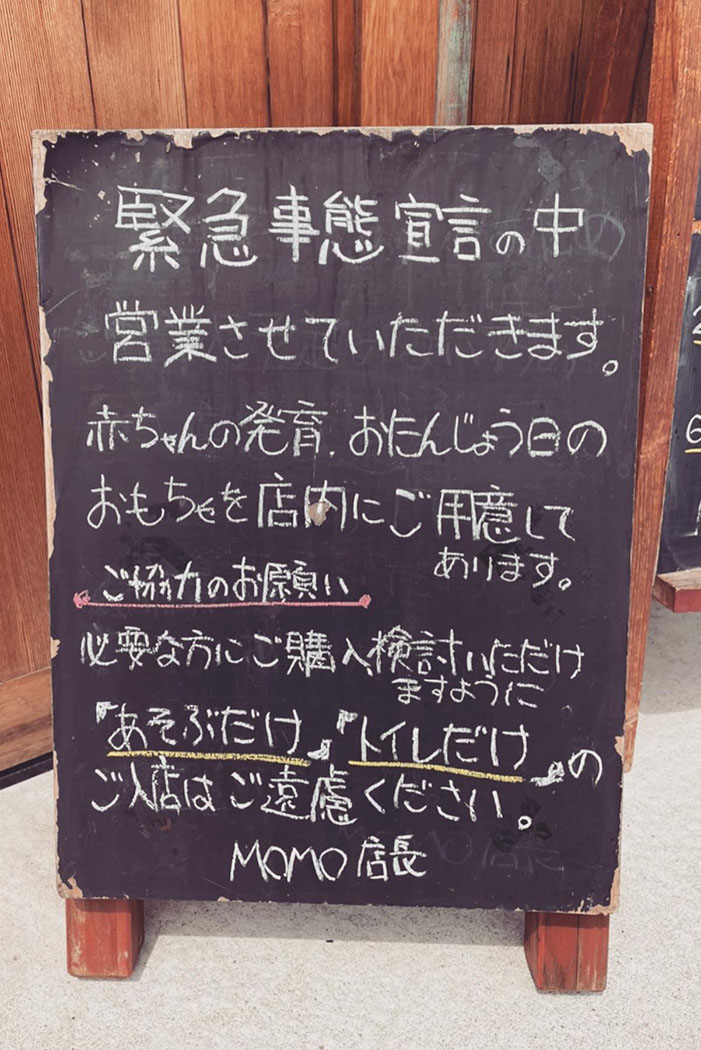 緊急事態宣言の中
営業させていただきます。
赤ちゃんの発育、おたんじょう日の
おもちゃを店内にご用意して
あります。
ご協力のお願い
必要な方にご購入検討いただけ
ますように
『あそぶだけ』『トイレだけ』の
ご入店はご遠慮ください。
MOMO店長